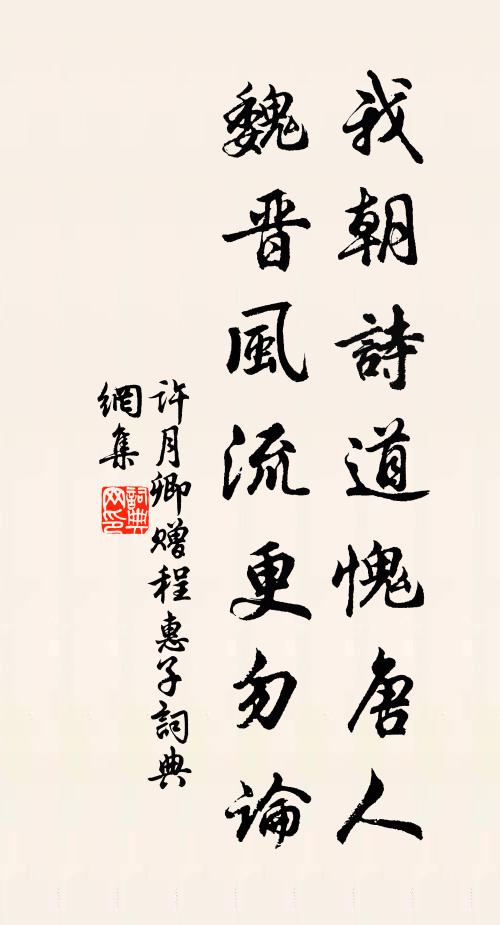 我朝詩道愧唐人
魏晋風流更勿論
许月卿赠程惠子詞典
網集
詞典網印